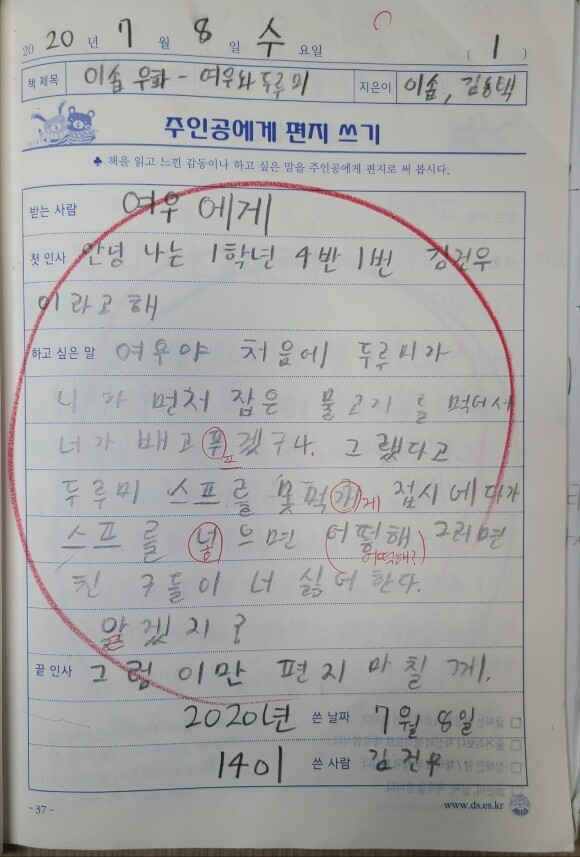 2020년 7월 8일 수요일 ( 1 )
책 제목 이솝 우화 - 여우와 두루미 지은이 이솝, 김용택
주인공에게 편지 쓰기
♣ 책을 읽고 느낀 감동이나 하고 싶은 말을 주인공에게 편지로 써 봅시다.
받는 사람 여우에게
첫 인사 안녕 나는 1학년 4반 1번 김건우
이라고 해
하고 싶은 말 여우야 처음에 두루미가
니가 먼저 잡은 물고기를 먹어서
너가 배고푸겠구나. 그랬다고
프
두루미 스프를 못먹개 접시에다가
게
스프를 넣으면 어떻해 그러면
어떡해?
친구들이 너 싫어한다.
알겠지?
끝 인사 그럼 이만 편지 마칠께.
2020년 쓴 날짜 7월 8일
1401 쓴 사람 김건우
- 37 -
www.ds.es.kr